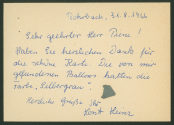 Rohrbach, 31.8.1966
Sehr geehrter Herr Piene!
Haben Sie herzlichen Dank für
die schöne Karte. Die von mir
gefundenen Ballons hatten die
Farbe „Silbergrau".
Herzliche Grüße Ihr
Horst